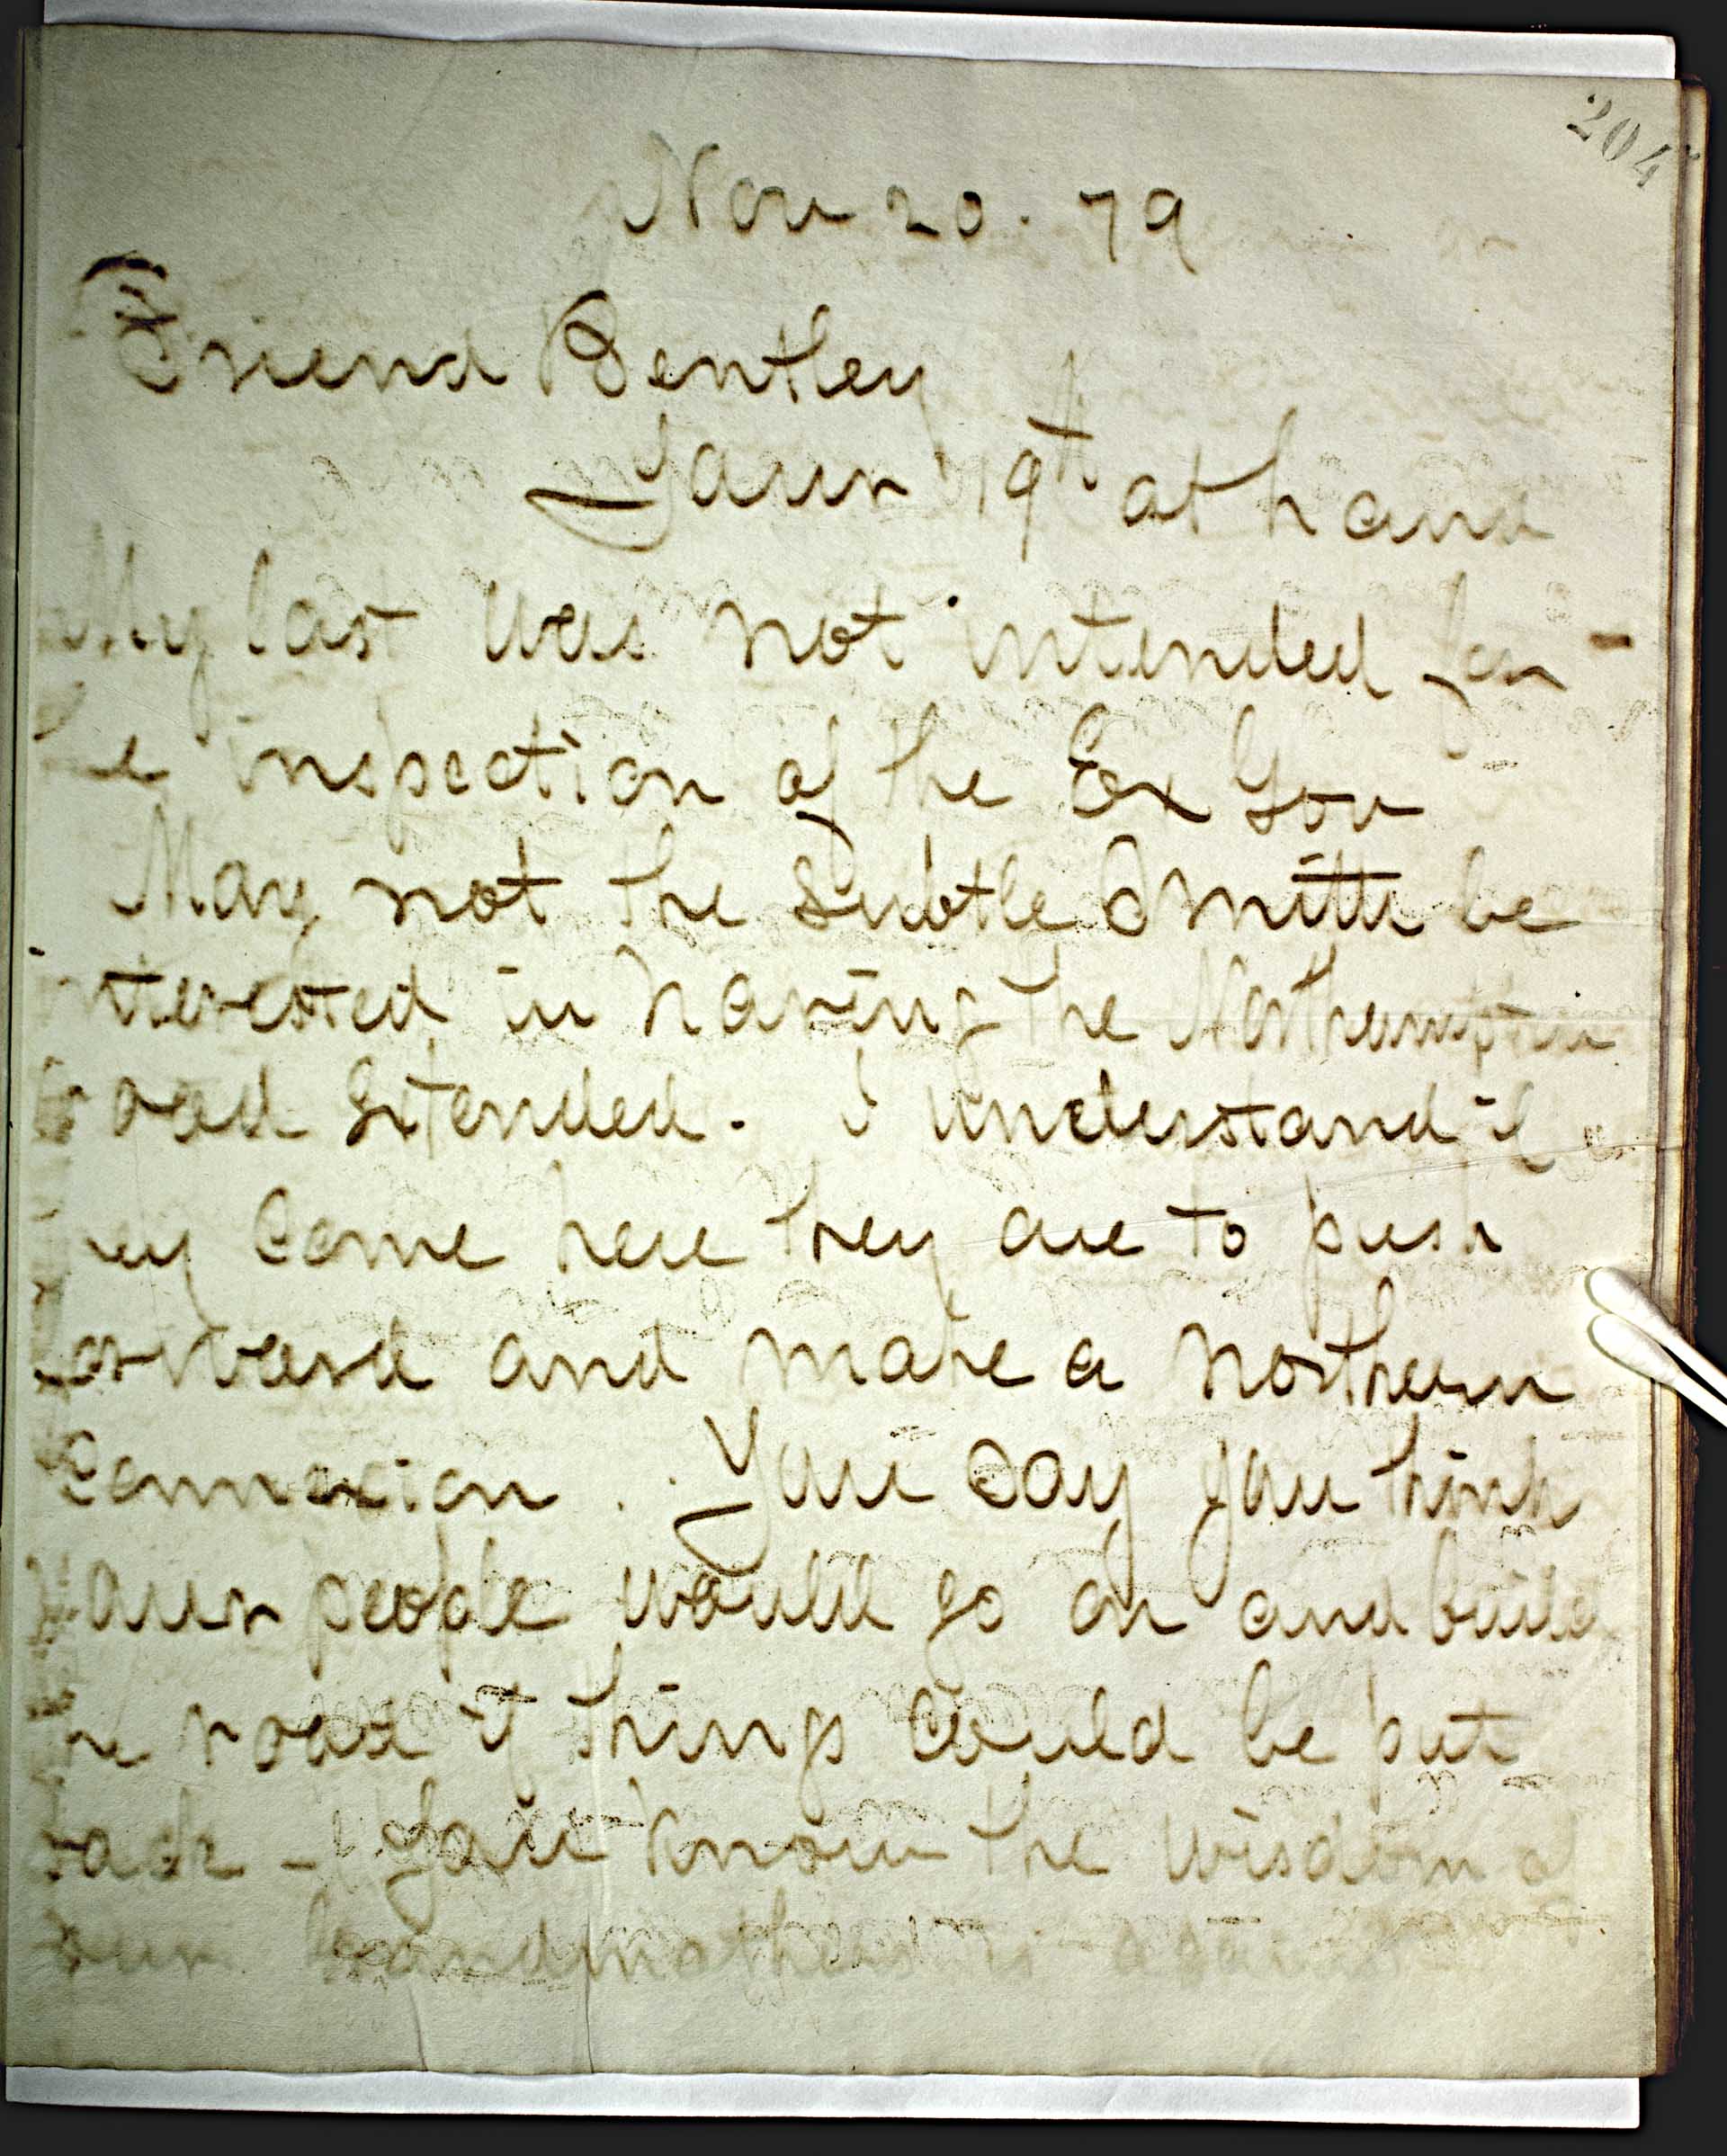 204
Nov 20. 79
Friend Bentley
Your 19th at hand
My last was not intended for
e inspection of the Ex Gov
May not the Subtle Smith be
terested in having the Northampton
oad Extended. I understand if
ey come here they are to push
orward and make a Northern
Connexion. You say you think
our people would go on and build
he road if things could be put
back - You know the wisdom of
our Grandmothers is against